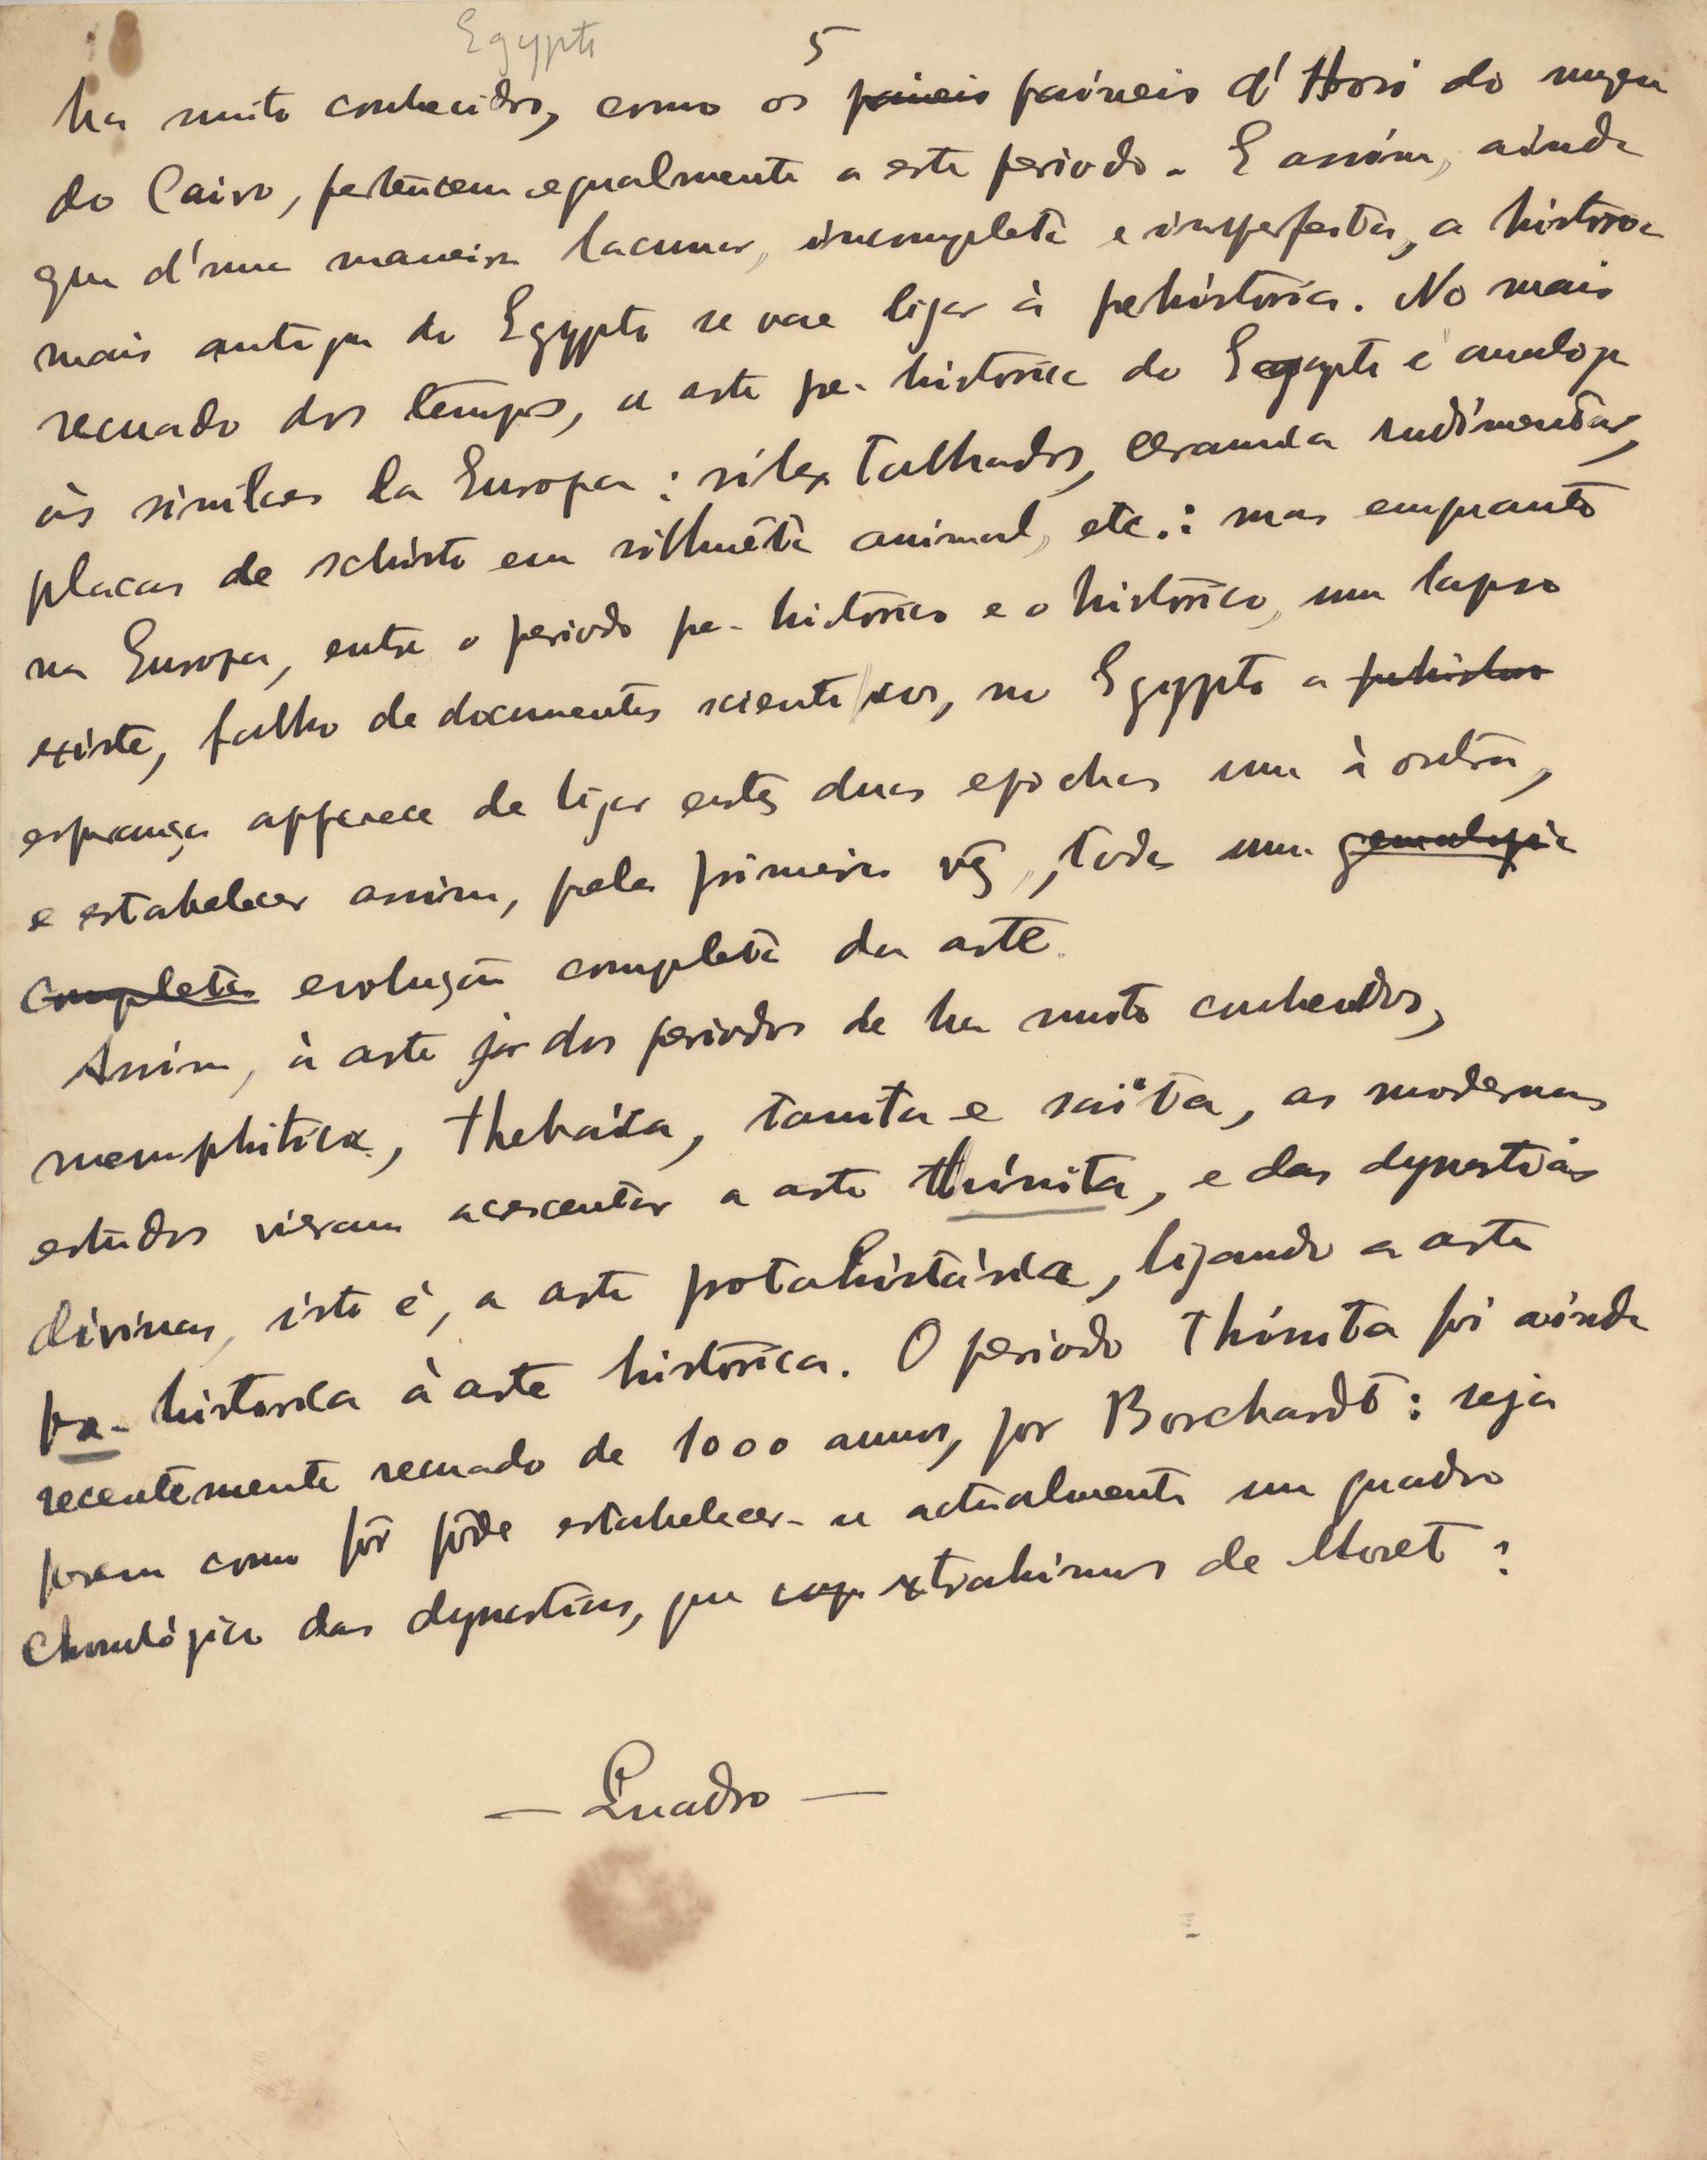 Egypto
5
ha muito conhecidos, como os paineis paineis d'Hosi do museu
do Cairo, pertencem egualmente a este periodo. E assim, ainda
que d'uma maneira lacunar, incompleta e imperfeita, a historia
mais antiga do Egypto se vae ligar à prehistoria. No mais
recuado dos tempos, a arte pre-historica do Egypto é analoga
às similares da Europa: silex talhados, ceramica rudimentar,
placas de schisto em silhuêta animal, etc.: mas emquanto
na Europa, entre o periodo pre-historico e o historico, um lapso
existe, falho de documentos scientificos, no Egypto a prehistor
esperança apparece de ligar estas duas epochas uma à outra,
e estabelecer assim, pela primeira vez, toda uma genealogia
completa evolução completa da arte.
Assim, à arte já dos periodos de ha muito conhecidos,
memphitica, thebaica, tanita e saïta, as modernos
estudos vieram acrescentar a arte thinita, e das dynastias
divinas, isto é, a arte protohistórica, ligando a arte
pre-historica à arte historica. O periodo thinita foi ainda
recentemente recuado de 1000 annos, por Borchardt: seja
porem como fôr pôde estabelecer-se actualmente um quadro
chronlógico das dynastias, que extrahimos de Moret:
— Quadro —